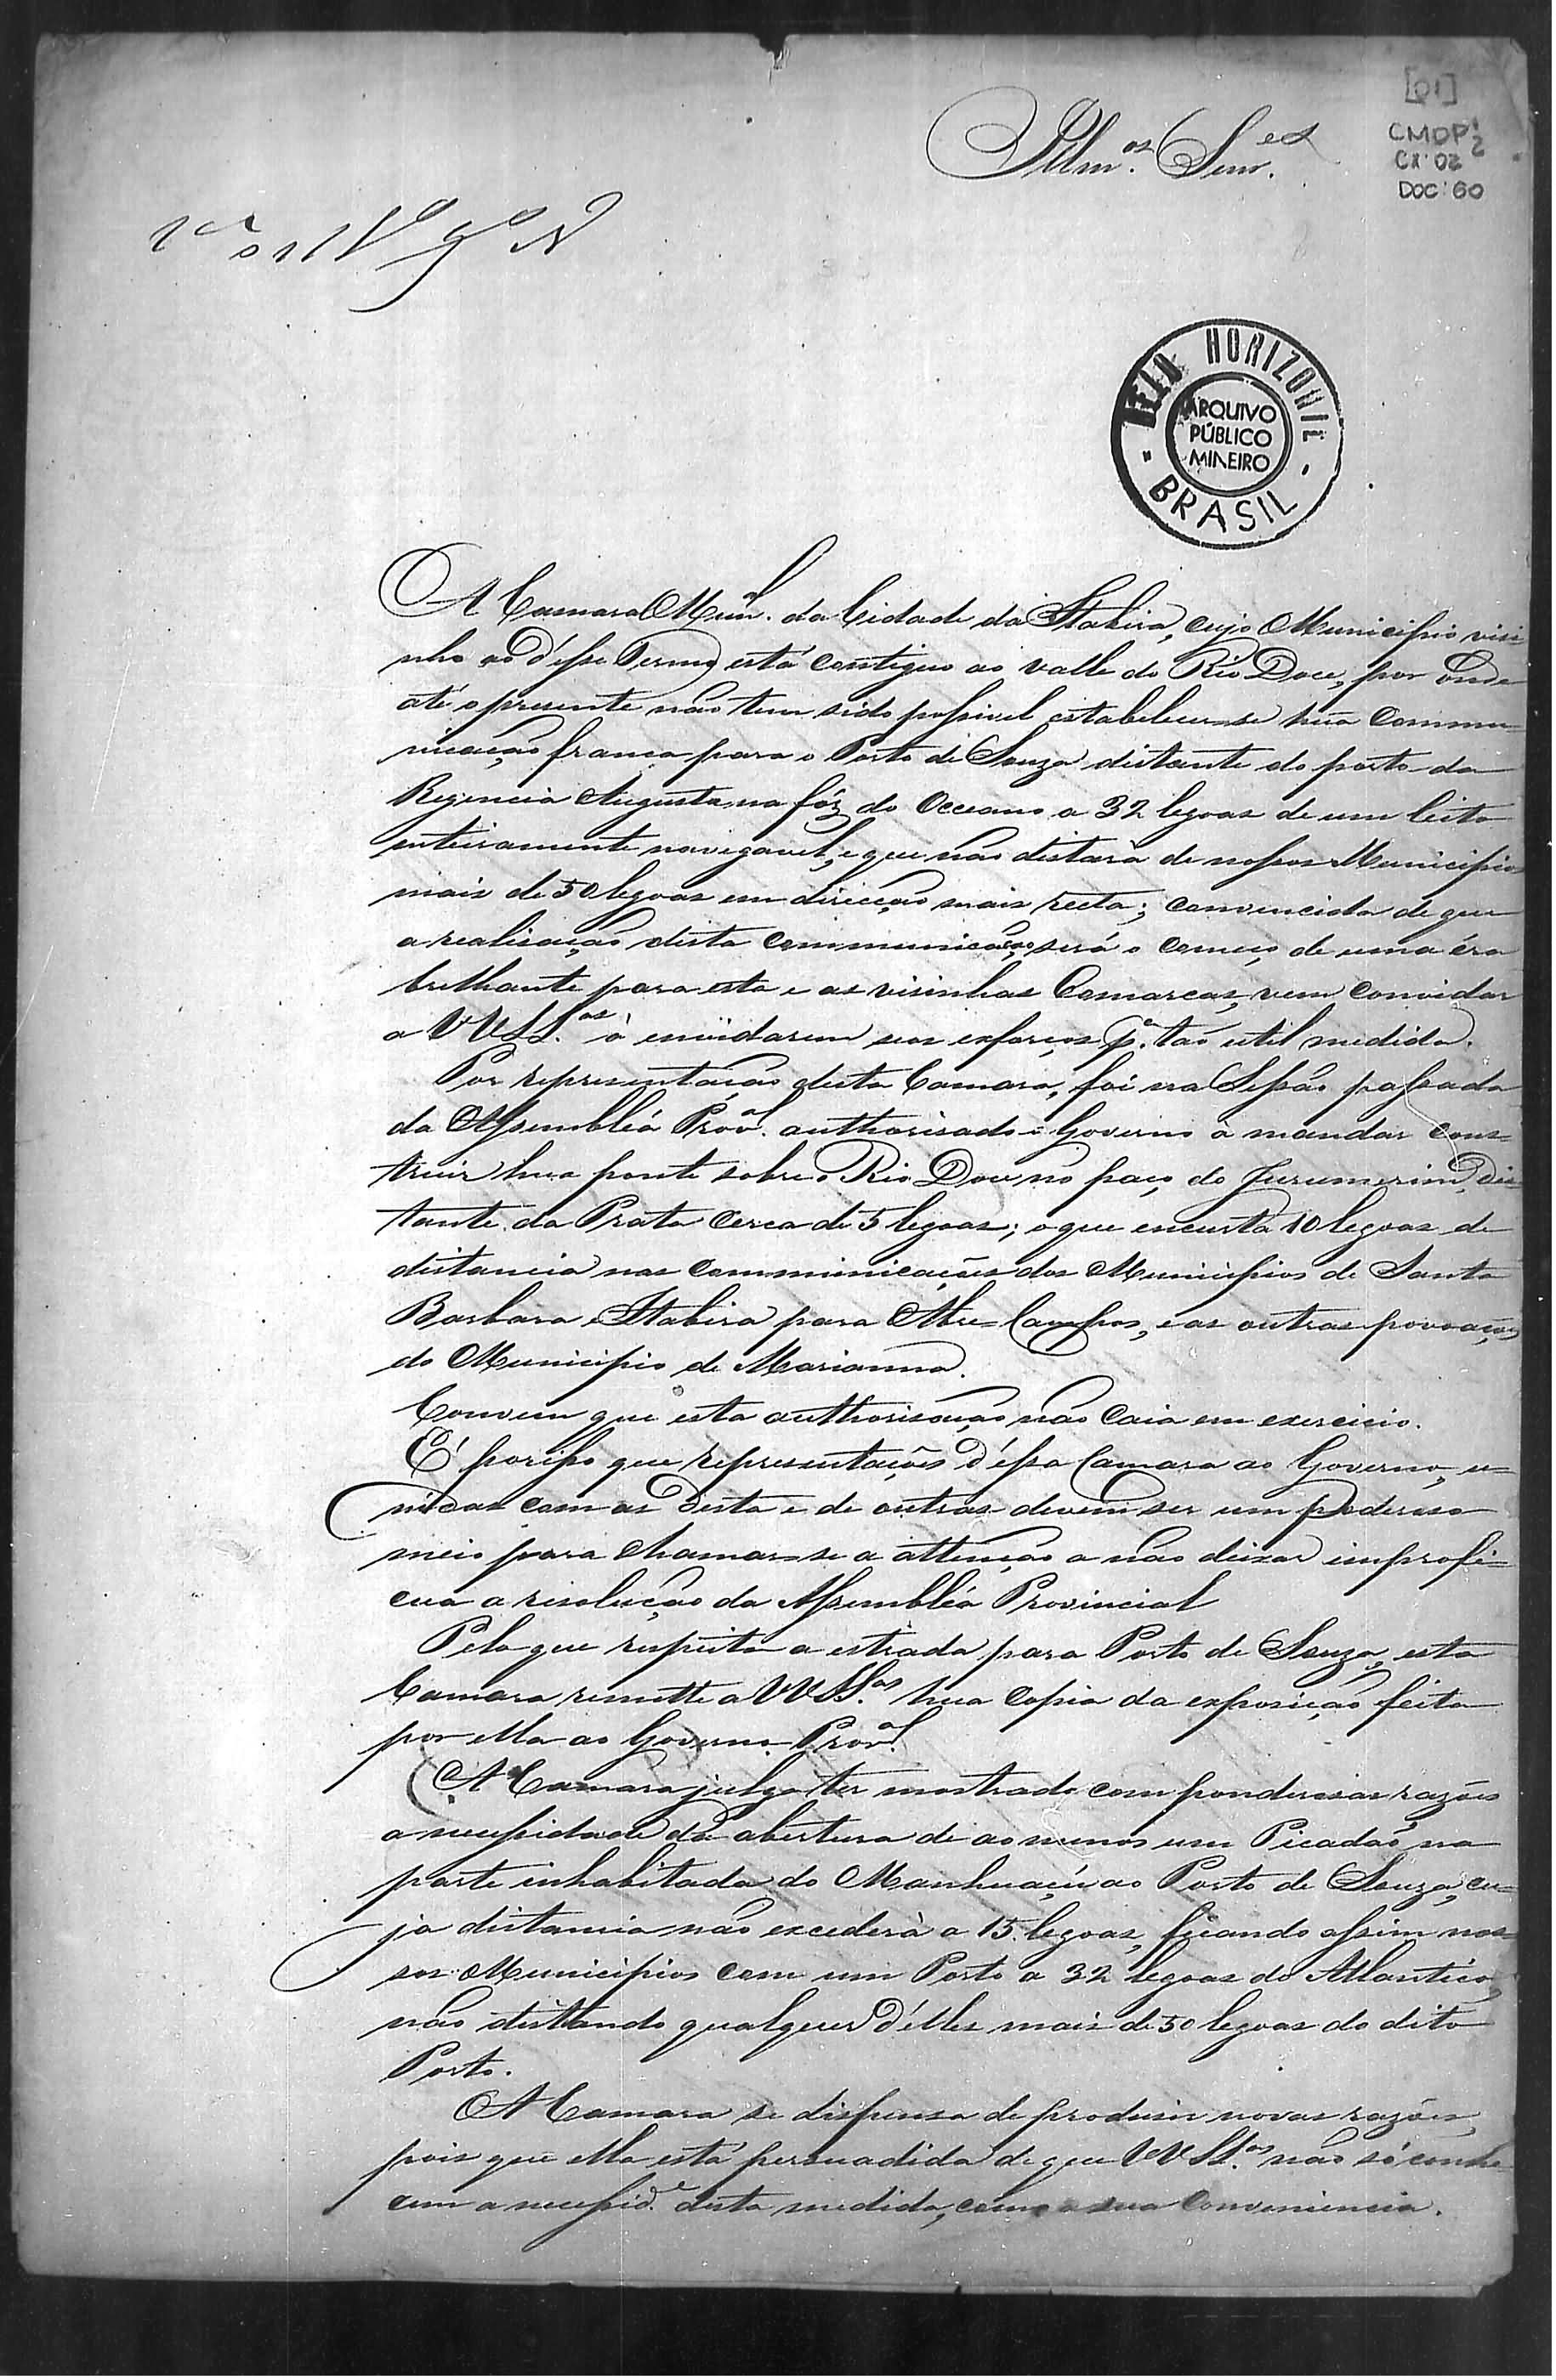 [01]
CMOP 1/2
CX: 02
DOC: 60
Illm.os Senr.es
BELO HORIZONTE
ARQUIVO
PÚBLICO
MINEIRO
BRASIL
A Camara Mun.al da Cidade da Itabira, cujo Municipio visi
nho ao d'esse Termo está contiguo ao valle do Rio Doce, por onde
até o presente não tem sido possivel estabelecer-se hũa Commu-
nicação franca para o Porto de Souza distante do porto da
Regencia Augusta na fóz do Occeano a 32 legoas de um leito
enteiramente navegavel, e que não distará de nossos Municipios
mais de 50 legoas em direcção mais recta; convencida de que
a realisação desta communicação, será o começo de uma éra
brilhante para esta e as visinhas Comarcas, vem convidar
a VVSS.as à envidarem seos esforços p.a tão util medida.
Por representação desta Camara, foi na Sessão passada
da Assembléa Prov.al authorisado o Governo à mandar cons-
truir hua ponte sobre o Rio Doce no paço do Jurumerim, dis-
tante da Prata cerca de 5 legoas; o que encurta 10 legoas de
distancia nas communicações dos Municipios de Santa
Barbara e Itabira para Abre-Campos, e as outras povoações
do Municipio de Marianna.
Convem que esta authorisação não caia em exercicio.
É por isso que representações d'essa Camara ao Governo, u-
nidas com as desta e de outras devem ser um poderoso
meio para chamar-se a attenção a não deixar improfi-
cua a resolução da Assembléa Provincial
Pelo que respeita a estrada para Porto de Souza, esta
Camara remette a VVSS.as hua Copia da exposição feita
por ella ao Governo Prov.al
A Camara julga ter mostrado com ponderosas razões
a necessidade da abertura de ao menos um Picadão na
parte inhabitada do Manhuaçú ao Porto de Souza, cu-
ja distancia não excederà a 15 legoas, ficando assim nos-
sos Municipios com um Porto a 32 legoas do Atlantico,
não distando qualquer d'elles mais de 50 legoas do dito
Porto.
A Camara se dispensa de produsir novas razões,
pois que ella está persuadida de que VVSS.as não só conhe-
cem a necessid.e desta medida, como a sua Conveniencia.